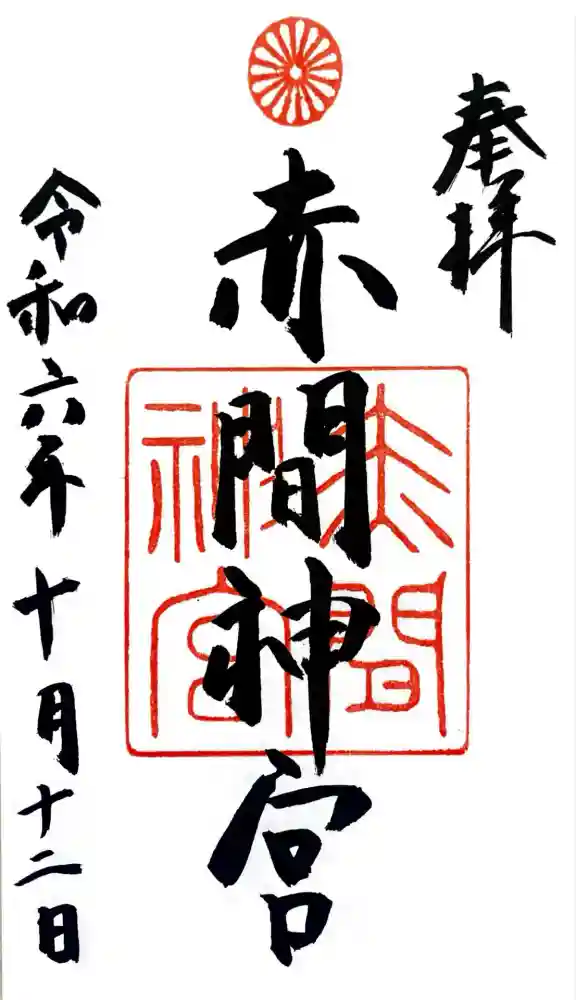 奉拝
赤間神宮
赤間神宮
令和六年十月十二日